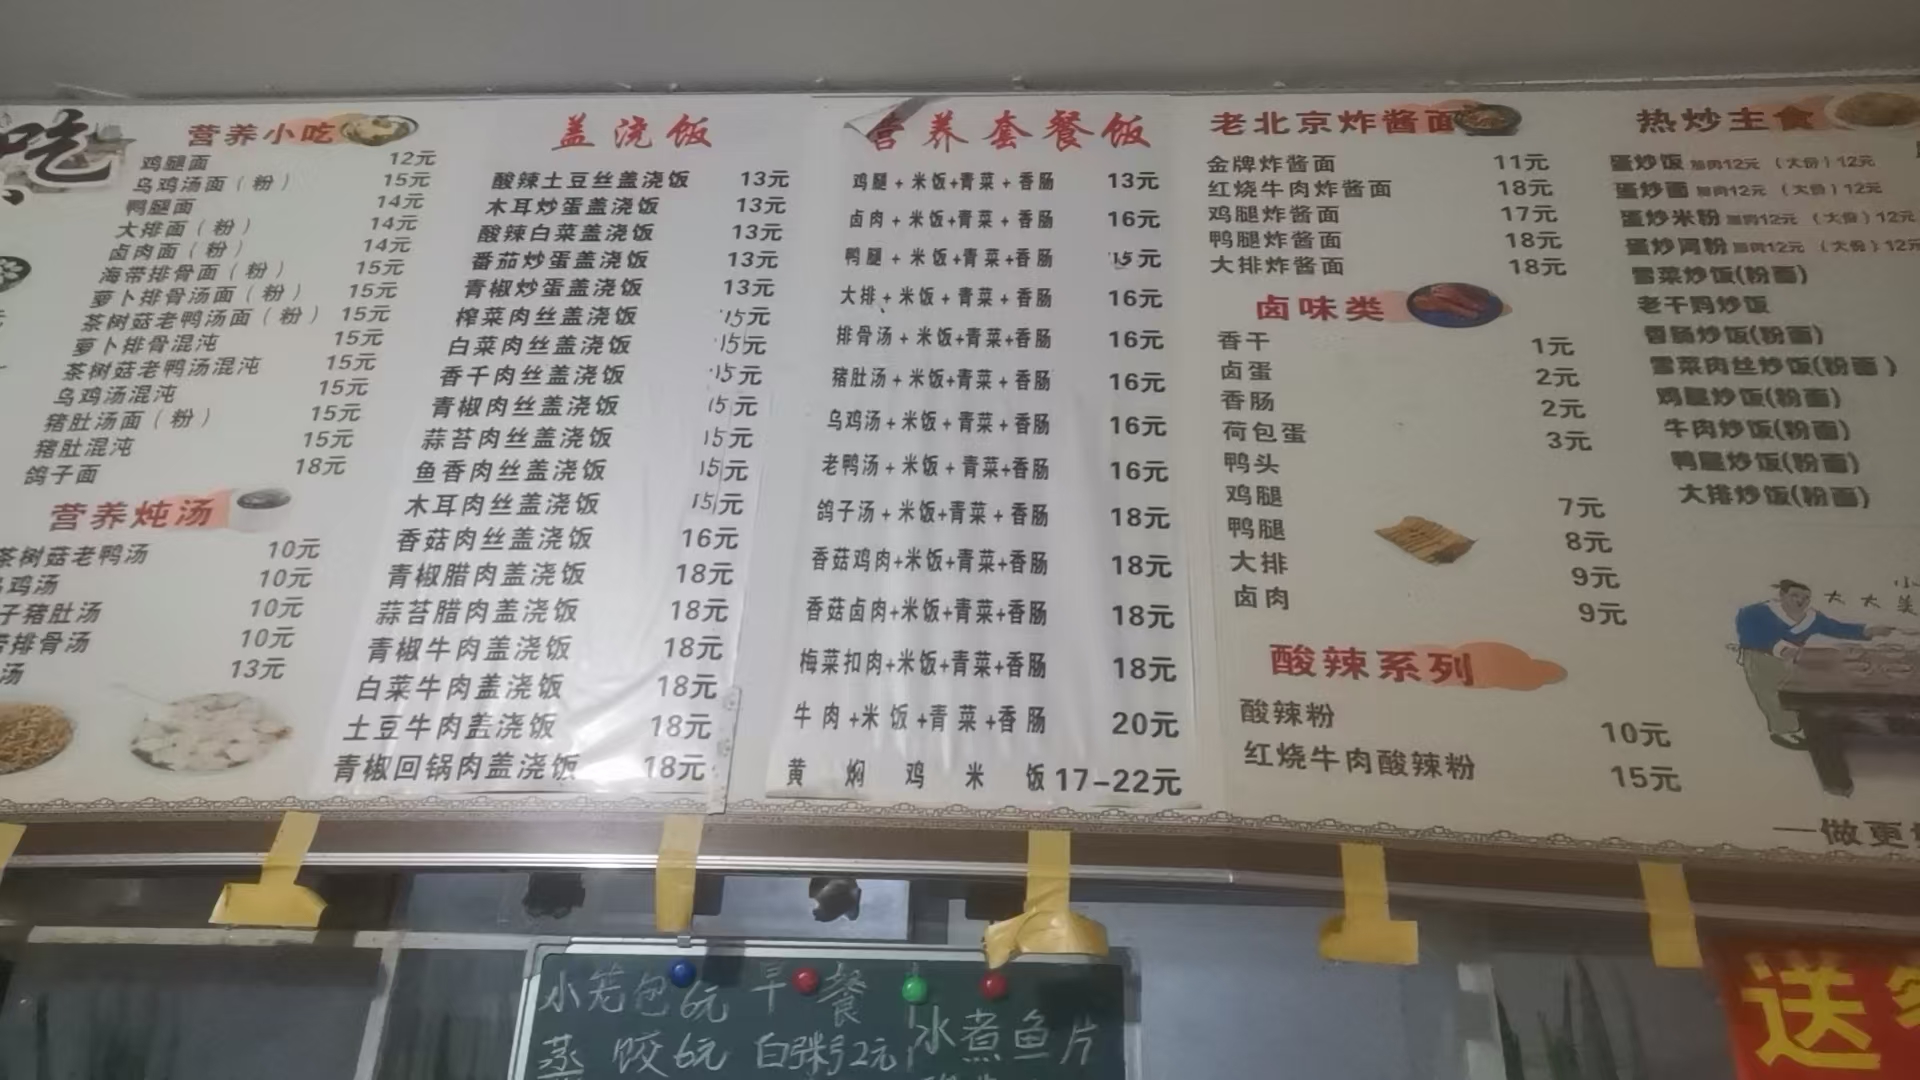 吃
营养小吃
鸡腿面 12元
乌鸡汤面（粉） 15元
鸭腿面 14元
大排面（粉） 14元
卤肉面（粉） 14元
海带排骨面（粉） 15元
萝卜排骨汤面（粉） 15元
茶树菇老鸭汤面（粉） 15元
萝卜排骨混沌 15元
茶树菇老鸭汤混沌 15元
乌鸡汤混沌 15元
猪肚汤面（粉） 15元
猪肚混沌 15元
鸽子面 18元
营养炖汤
茶树菇老鸭汤 10元
鸡汤 10元
子猪肚汤 10元
排骨汤 10元
汤 13元
盖浇饭
酸辣土豆丝盖浇饭 13元
木耳炒蛋盖浇饭 13元
酸辣白菜盖浇饭 13元
番茄炒蛋盖浇饭 13元
青椒炒蛋盖浇饭 13元
榨菜肉丝盖浇饭 15元
白菜肉丝盖浇饭 15元
香干肉丝盖浇饭 15元
青椒肉丝盖浇饭 15元
蒜苔肉丝盖浇饭 15元
鱼香肉丝盖浇饭 15元
木耳肉丝盖浇饭 15元
香菇肉丝盖浇饭 16元
青椒腊肉盖浇饭 18元
蒜苔腊肉盖浇饭 18元
青椒牛肉盖浇饭 18元
白菜牛肉盖浇饭 18元
土豆牛肉盖浇饭 18元
青椒回锅肉盖浇饭 18元
营养套餐饭
鸡腿+米饭+青菜+香肠 13元
卤肉+米饭+青菜+香肠 16元
鸭腿+米饭+青菜+香肠 15元
大排+米饭+青菜+香肠 16元
排骨汤+米饭+青菜+香肠 16元
猪肚汤+米饭+青菜+香肠 16元
乌鸡汤+米饭+青菜+香肠 16元
老鸭汤+米饭+青菜+香肠 16元
鸽子汤+米饭+青菜+香肠 18元
香菇鸡肉+米饭+青菜+香肠 18元
香菇卤肉+米饭+青菜+香肠 18元
梅菜扣肉+米饭+青菜+香肠 18元
牛肉+米饭+青菜+香肠 20元
黄焖鸡米饭 17-22元
老北京炸酱面
金牌炸酱面 11元
红烧牛肉炸酱面 18元
鸡腿炸酱面 17元
鸭腿炸酱面 18元
大排炸酱面 18元
卤味类
香干 1元
卤蛋 2元
香肠 2元
荷包蛋 3元
鸭头
鸡腿 7元
鸭腿 8元
大排 9元
卤肉 9元
酸辣系列
酸辣粉 10元
红烧牛肉酸辣粉 15元
热炒主食
蛋炒饭 加肉12元（大份）12元
蛋炒面 加肉12元（大份）12元
蛋炒米粉 加肉12元（大份）12元
蛋炒河粉 加肉12元（大份）12元
雪菜炒饭(粉面)
老干妈炒饭
香肠炒饭(粉面)
雪菜肉丝炒饭(粉面)
鸡腿炒饭(粉面)
牛肉炒饭(粉面)
鸭腿炒饭(粉面)
大排炒饭(粉面)
小
大大美
一做更
早餐
小笼包6元
蒸饺6元 白粥2元
水煮鱼片
送